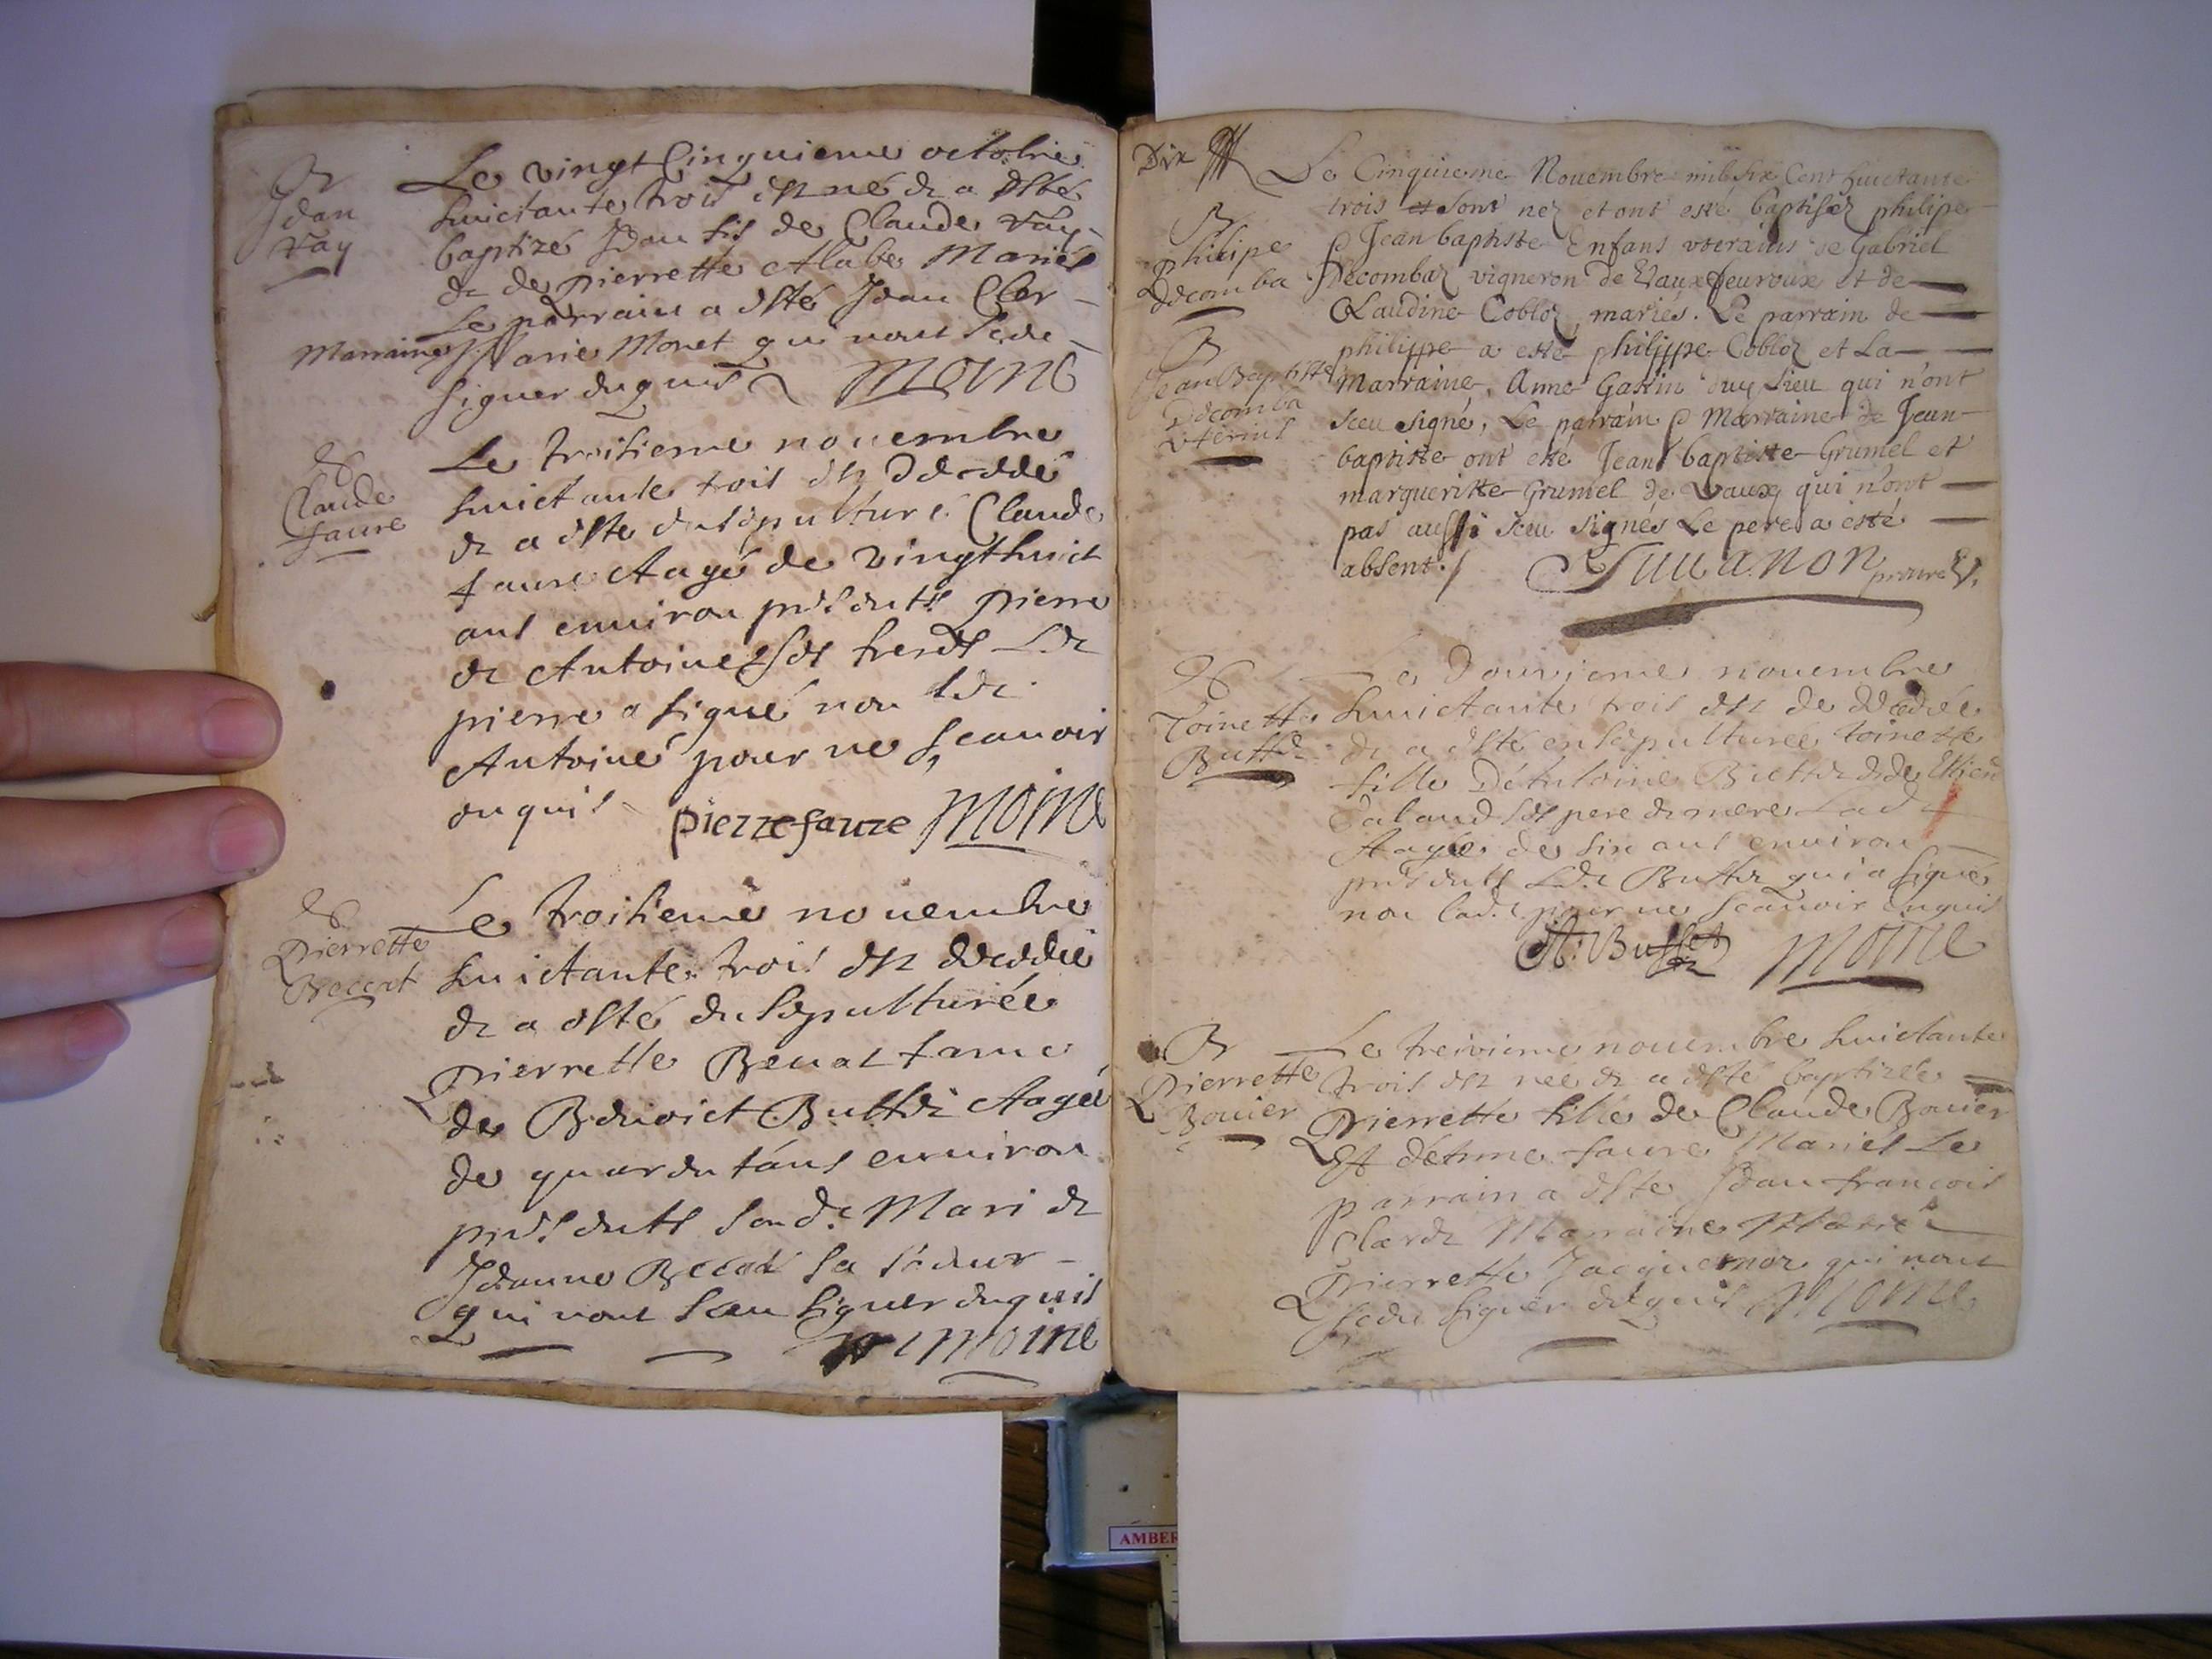 B
Jean
Vay
Le vingt Cinquieme octobre
huictante trois est né et a esté
baptizé Jean fils de Claude Vay
et de pierrette Mariés
Le parrain a esté Jean Cler
Marraine Marie Monet qui nont sceu
signer enquis Moine
Claude
faure
Le troisieme novembre
huictante trois est decedé
et a esté ensepulturé Claude
faure Aagé de vingt huict
ans environ presents pierre
et Antoine ses freres Led.
pierre a signé non led.
Antoine pour ne scavoir
enquis pierre faure Moine
Pierrette
Le troisieme novembre
huictante trois est decedée
et a esté ensepulturée
pierrette fame
de Benoict Buffet Aagée
de quarentans environ
presents son d. Mari et
Jeanne sa soeur
qui nont sceu signer enquis
Moine
Dix
Le Cinquieme Nouembre mil six Cent huictante
trois et sont nez et ont esté baptisez philipe
B
Philipe
Decomba
& Jean baptiste Enfans uterains de Gabriel
Decombaz vigneron de Vauxheuroux et de
Claudine Cobloz, mariés. Le parrain de
philippe a esté philippe Cobloz et La
B
Jean Baptiste
Decomba
Uterins
Marraine, Anne Gastin duq lieu qui n'ont
sceu signé, Le parrain & Marraine de Jean
baptiste ont esté Jean baptiste Grumel et
margueritte Grumel de Vaux qui n'ont
pas aussi sceu signés Le pere a esté
absent./
Toinette
Buffet
Le Douzieme novembre
huictante trois est decedée
et a esté ensepulturée toinette
fille D'Antoine Buffet et de
ses pere et mere Lad.
Aagée de six ans environ
presents Led. Buffet qui a signé
non lad. pour ne scavoir enquis
A: Buffet Moine
B
Pierrette
Bouier
Le treizieme nouembre huictante
trois est née et a esté baptizée
Pierrette fille de Claude Bouier
Et d'Anne faure Mariés Le
parrain a esté Jean francois
Clerc Marraine Marie
Pierrette Jacquemoz qui nont
sceu signer enquis Moine
AMBER